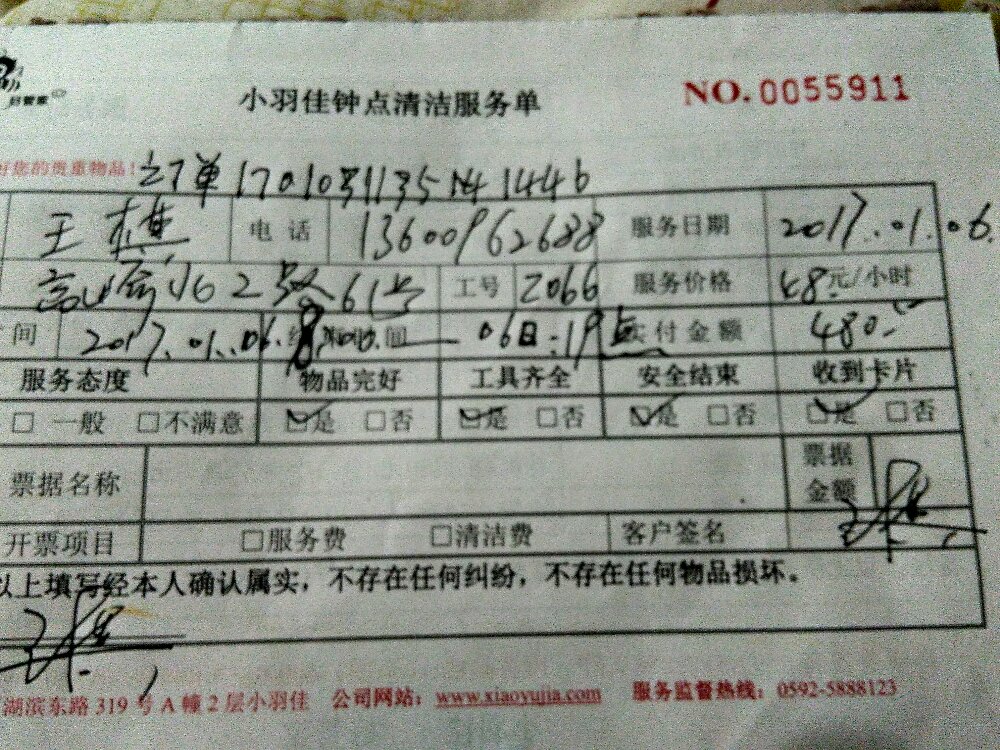 好管家
小羽佳钟点清洁服务单 NO. 0055911
好您的贵重物品!
订单
王 电 话 13600962688 服务日期 2017.01.06.
工号 2066 服务价格 48元/小时
间 2017.01.06. 间 06日:19点 实付金额 480.
服务态度 物品完好 工具齐全 安全结束 收到卡片
□ 一般 □不满意 ☑是 □否 ☑是 □否 ☑是 □否 ☑是 □否
票据名称 票据金额
开票项目 □服务费 □清洁费 客户签名
以上填写经本人确认属实，不存在任何纠纷，不存在任何物品损坏。
湖滨东路 319 号 A 幢 2 层小羽佳 公司网站：www.xiaoyujia.com 服务监督热线：0592-5888123